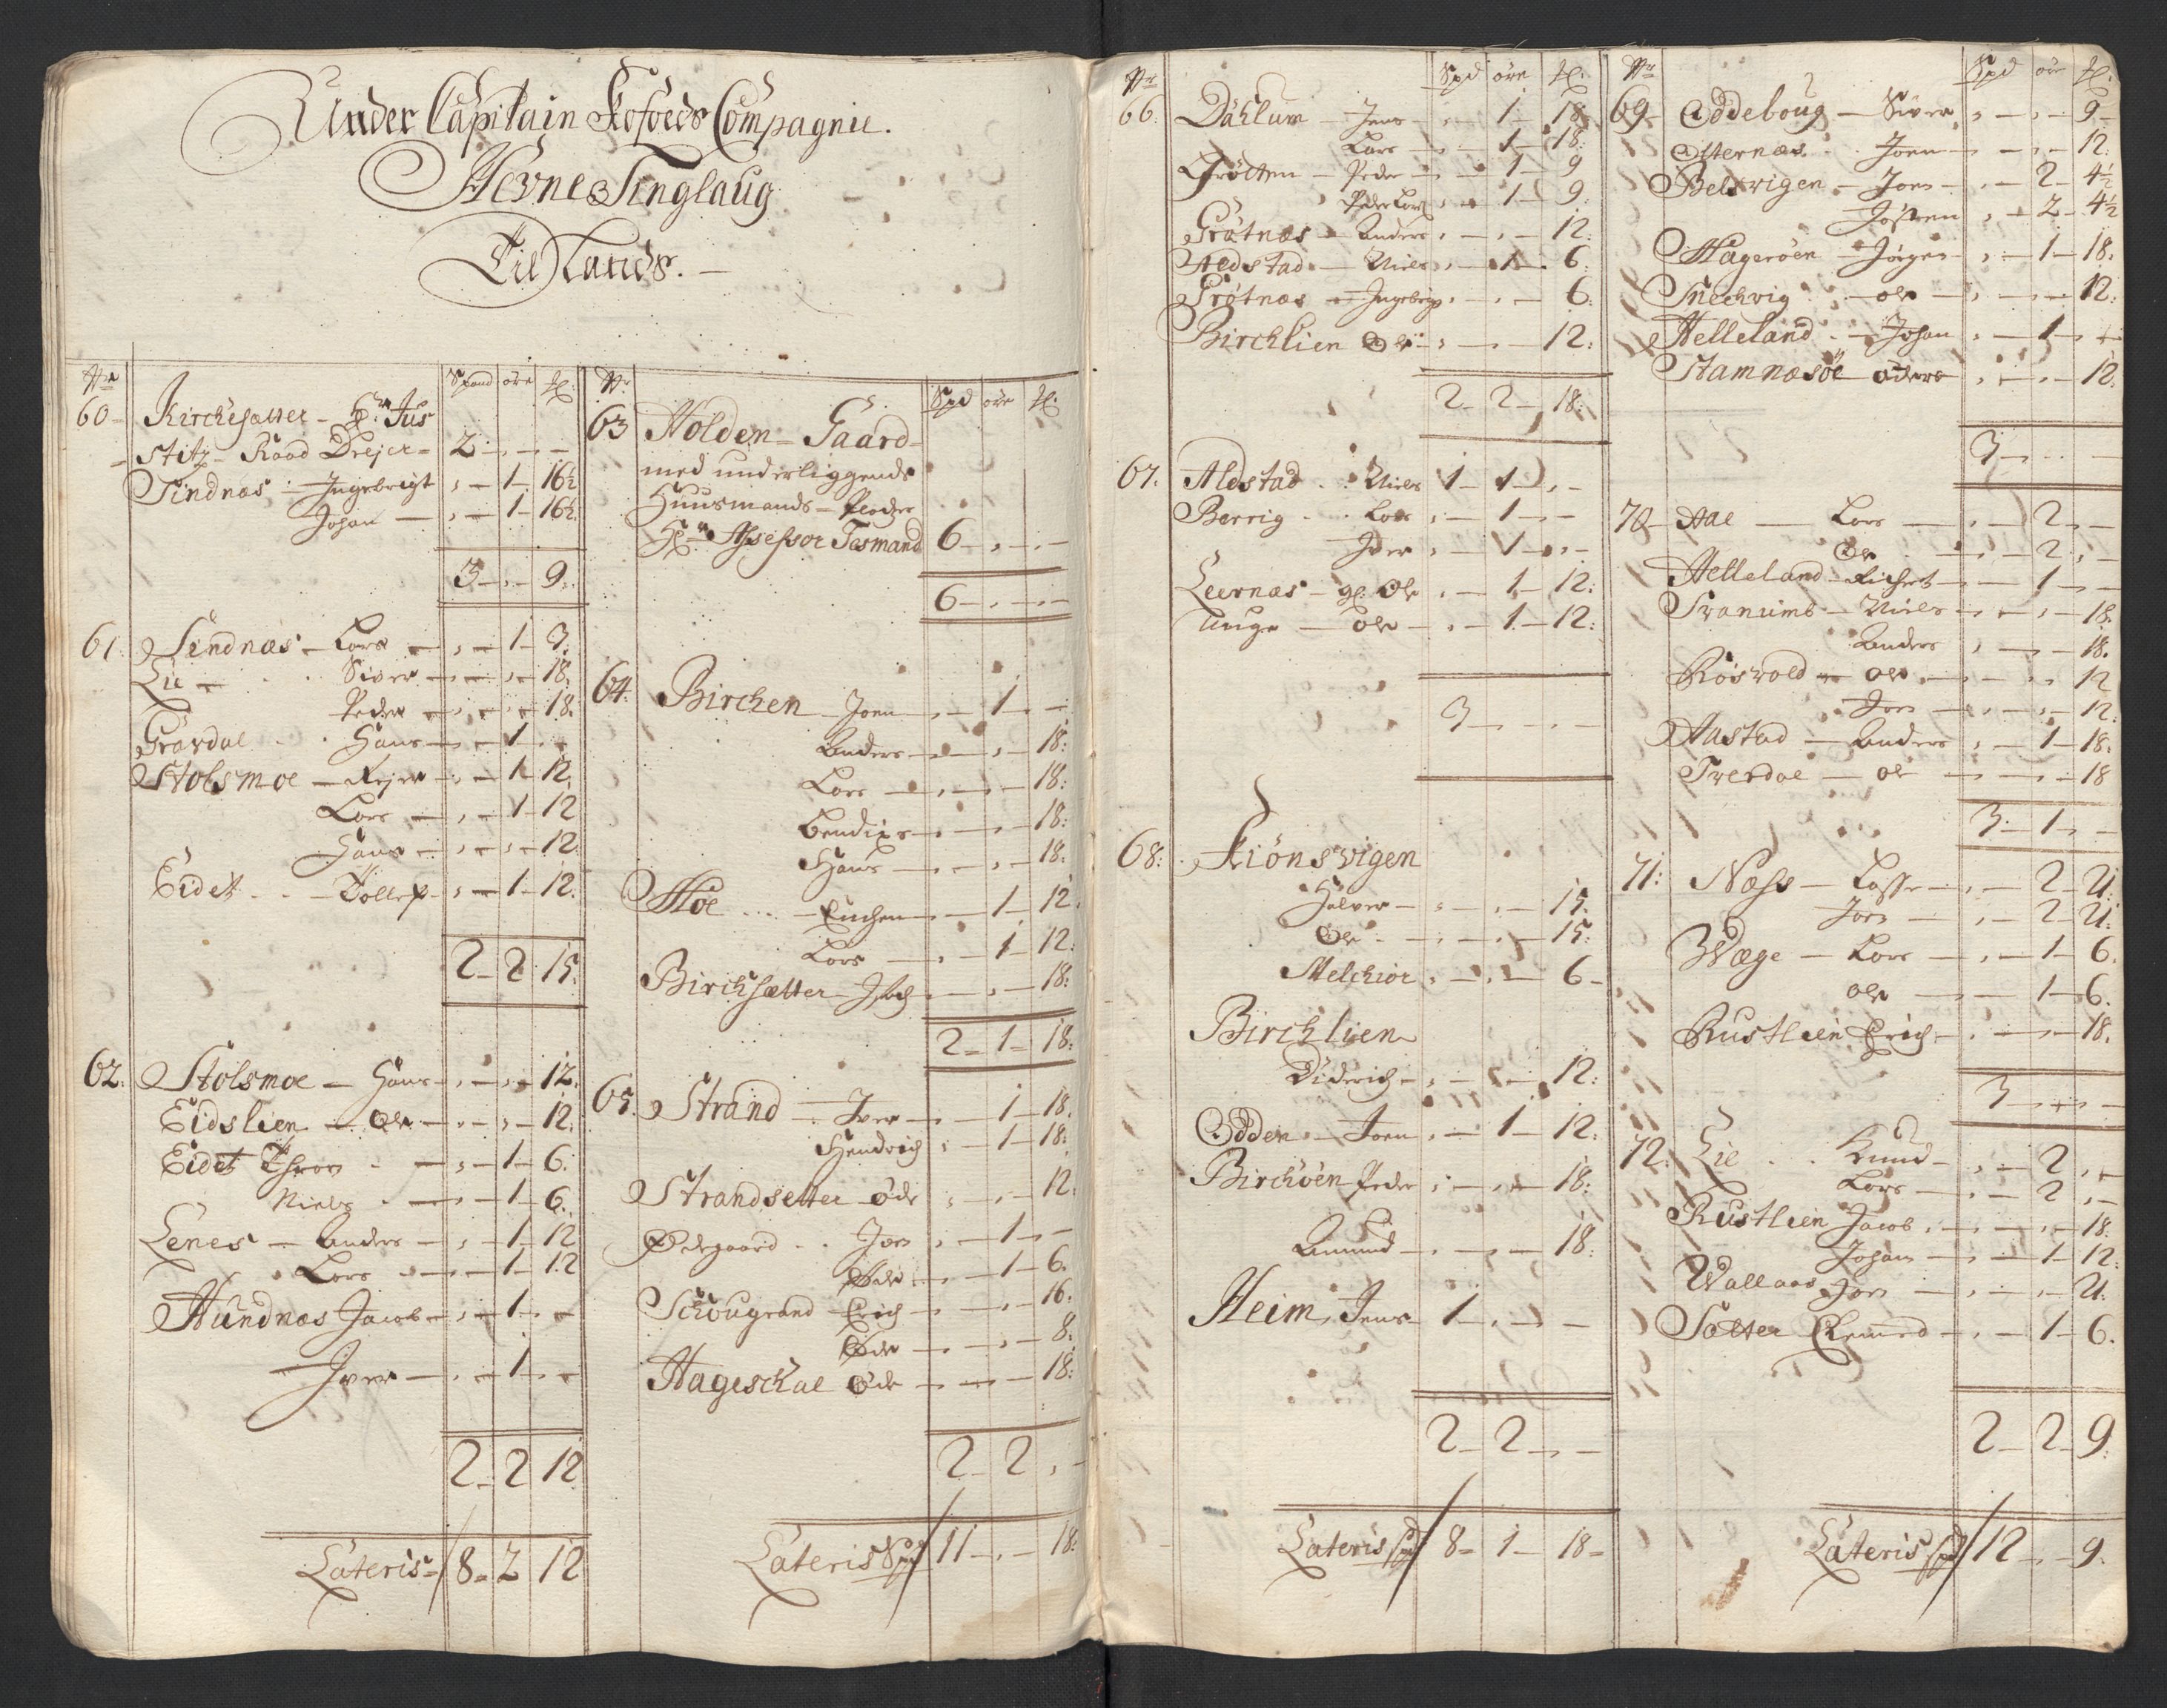 Under Capitain Kofoeds Compagnie.
Hevne Tinglaug
Til Lands. —
Nr Spand øre
60 — Kirchesætter — Hr Jus
stitz Raad Drejer — 2 — —
Tindnæs — Ingebrigt — 1 — 16½
Johan — 1 — 16½
3 — 9
61. Tendnæs — Lars — 1 — 3.
Lie — Siver — 18.
Peder — 18.
Gravdal — Hans — 1 —
Stolsmoe — Rejer — 1 — 12.
Lars — 1 — 12
Hans — 12.
Eidet — Tollef — 1 — 12.
2 — 2 15.
62. Stolsmoe — Hans — 12.
Eidslien — Ole — 12.
Eidet — 1 — 6.
Niels — 1 — 6.
Lenes — Anders — 1 — 12
Lars — 1 — 12
Hundnæs Jacob — 1 —
Iver — 1 —
2 — 2 12
Lateris — 8 — 2 12
Nr Spd øre
63 Holden — Gaard —
med underliggende
Huusmands — Pladser
Hr Assessor Tesmand 6 — — —
6 — — —
64. Birchen — Joen — 1 — —
Anders — 18.
Lars — 18.
Bendix — 18.
Hans — 18.
Hoe — — 1 — 12.
Lars — 1 — 12.
Birchsætter — 18.
2 — 1 — 18.
65. Strand — Iver — 1 — 18.
Hendrich — 1 — 18.
Strandsetter øde — 12.
Ødegaard — Jon — 1 —
Øde — 1 — 6.
Schougrand Erich — 16.
Øde — 8.
Hageschal Øde — 18.
2 — 2 —
Lateris Spd 11 — — 18.
Nr Spd øre
66. Dahlum — Jens — 1 — 18.
Lars — 1 — 18.
Grötten — Peder — 1 — 9
Peder Lars — 1 — 9.
Grötnæs — Anders — 12.
Aldstad — Niels — 1 — 6.
Grötnæs — Ingebrigt — 6.
Birchlien Ole — 12.
2 — 2 — 18.
67. Aldstad — Niels 1 — 1 —
Berrig — Lars — 1 —
Iver — 1 —
Leernæs — gl. Ole — 1 — 12.
unge — Ole — 1 — 12.
3 — — —
68. Kiönsvigen
Halvor — 15.
Ole — 15.
Melchior — 6 —
Birchlien
Diderich — 12.
Odden — Joen — 1 — 12.
Birchöen Peder — 18.
Amund — 18.
Heim, Jens — 1 — —
2 — 2 — —
Lateris Spd 8 — 1 — 18 —
Nr Spd øre
69 — Oddeboug — Siver — 9 —
Otternæs — Joen — 12.
Belsvigen — Jon — 2 — 4½
Josten — 2 — 4½
Hagerøen — Jørgen — 1 — 18.
Snechvig — Ole — 12.
Helleland — Johan — 1 —
Stamnæsöe — øders — 12.
3 — — —
70 — Aae — Lars — 2 —
Ole — 2 —
Helleland — Richert — 1 —
Svanumb — Niels — 18.
Anders — 18.
Røsvold — Ole — 12
Jon — 12.
Aastad — Anders — 1 — 18.
Tverdal — Ole — 18
3 — 1 —
71. Næss — Lasse — 2 — 21.
Jon — 2 — 21.
Wæge — Lars — 1 — 6.
Ole — 1 — 6.
Rustlien Erich — 18.
3 — — —
72. Lie — Knud — 2 —
Lars — 2 —
Rustlien Jacob — 18.
Johan — 1 — 12.
Wallaas Jon — 21.
Sætter — 1 — 6.
2 — 2 — 9.
Lateris Spd 12 — — 9.